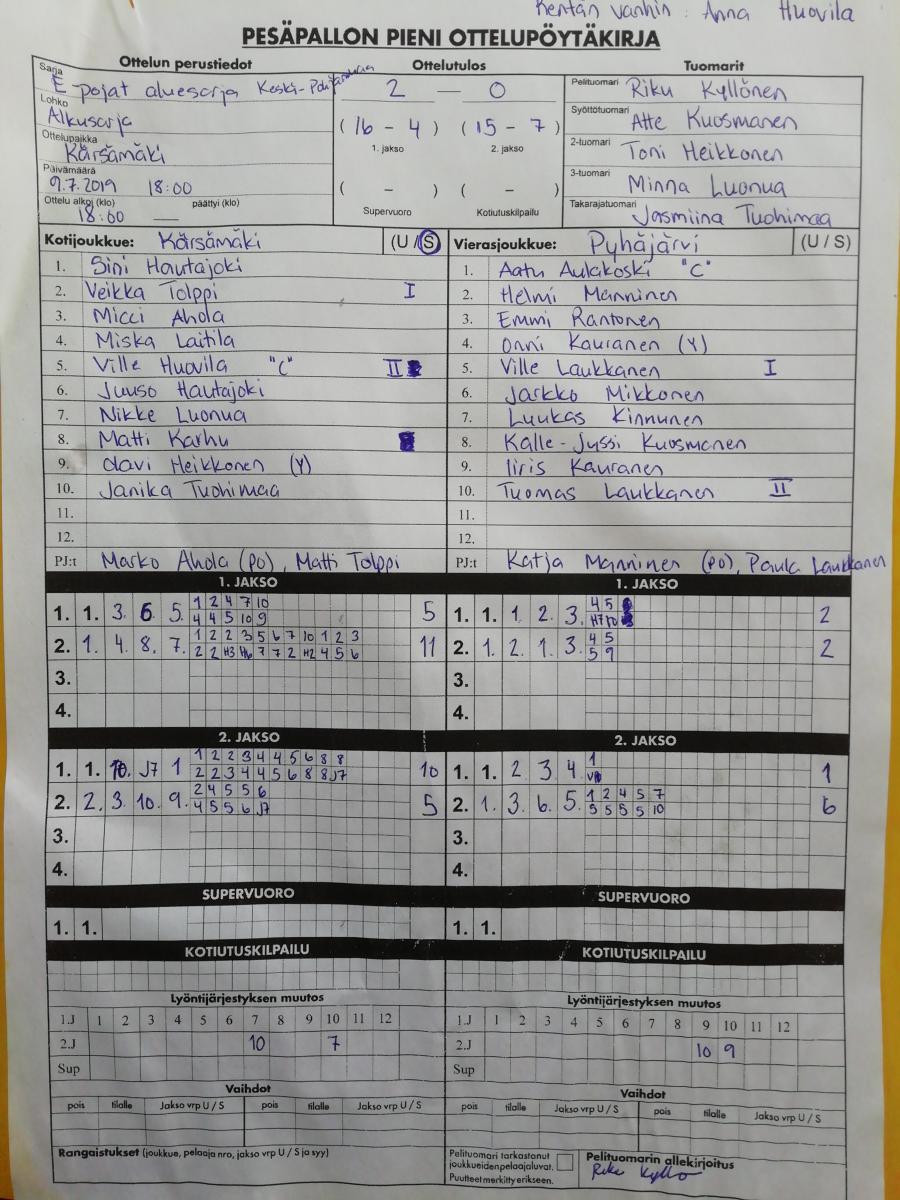 Kentän vanhin : Anna Huovila
PESÄPALLON PIENI OTTELUPÖYTÄKIRJA
Ottelun perustiedot Ottelutulos Tuomarit
Sarja E-pojat aluesarja Keski-Pohjanmaa
2 — 0
Pelituomari Riku Kyllönen
Lohko Alkusarja
(16 - 4) (15 - 7)
1. jakso 2. jakso
Syöttötuomari Atte Kuosmanen
Ottelupaikka Kärsämäki
2-tuomari Toni Heikkonen
Päivämäärä 9.7.2019 18:00
( - ) ( - )
Supervuoro Kotiutuskilpailu
3-tuomari Minna Luonua
Ottelu alkoi (klo) 18:00 päättyi (klo) —
Takarajatuomari Jasmiina Tuohimaa
Kotijoukkue: Kärsämäki (U/S) Vierasjoukkue: Pyhäjärvi (U / S)
1. Sini Hautajoki 1. Aatu Aulakoski "C"
2. Veikka Tolppi I 2. Helmi Manninen
3. Micci Ahola 3. Emmi Rantonen
4. Miska Laitila 4. Onni Kauranen (Y)
5. Ville Huovila "C" II 5. Ville Laukkanen I
6. Juuso Hautajoki 6. Jarkko Mikkonen
7. Nikke Luonua 7. Luukas Kinnunen
8. Matti Karhu 8. Kalle-Jussi Kuosmanen
9. Olavi Heikkonen (Y) 9. Iiris Kauranen
10. Janika Tuohimaa 10. Tuomas Laukkanen II
11. 11.
12. 12.
PJ:t Marko Ahola (PO), Matti Tolppi PJ:t Katja Manninen (PO), Paula Laukkanen
1. JAKSO 1. JAKSO
1. 1. 3. 6. 5. 1 2 4 7 10 5 1. 1. 1. 2. 3. 4 5 2
4 4 5 10 9 H7 10
2. 1. 4. 8. 7. 1 2 2 3 5 6 7 10 1 2 3 11 2. 1. 2. 1. 3. 4 5 2
2 2 H3 H6 7 7 2 H2 4 5 6 5 9
3. 3.
4. 4.
2. JAKSO 2. JAKSO
1. 1. 10. J7 1 1 2 2 3 4 4 5 6 8 8 10 1. 1. 2 3 4 1 1
2 2 3 4 4 5 6 8 8 J7
2. 2. 3. 10. 9. 2 4 5 5 6 5 2. 1. 3. 6. 5. 1 2 4 5 7 6
4 5 5 6 J7 5 5 5 5 10
3. 3.
4. 4.
SUPERVUORO SUPERVUORO
1. 1. 1. 1.
KOTIUTUSKILPAILU KOTIUTUSKILPAILU
Lyöntijärjestyksen muutos Lyöntijärjestyksen muutos
1.J 1 2 3 4 5 6 7 8 9 10 11 12 1.J 1 2 3 4 5 6 7 8 9 10 11 12
2.J 10 7 2.J 10 9
Sup Sup
Vaihdot Vaihdot
pois tilalle Jakso vrp U / S pois tilalle Jakso vrp U / S pois tilalle Jakso vrp U / S pois tilalle Jakso vrp U / S
Rangaistukset (joukkue, pelaaja nro, jakso vrp U / S ja syy)
Pelituomari tarkastanut
joukkueiden pelaajaluvat.
Puutteet merkitty erikseen.
Pelituomarin allekirjoitus
Riku Kyllö